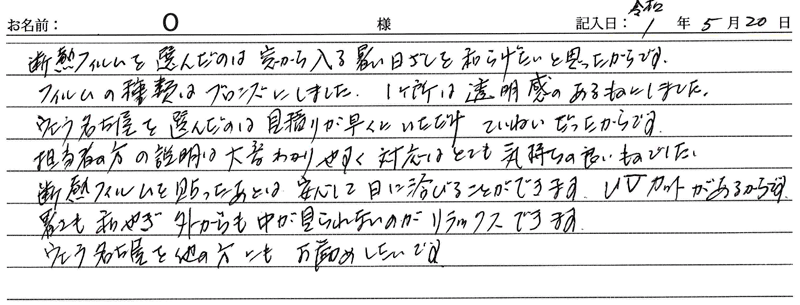 お名前： O 様 記入日：令和 1 年 5 月 20 日
断熱フィルムを選んだのは窓から入る暑い日ざしを和らげたいと思ったからです。
フィルムの種類はブロンズにしました。1ヶ所は透明感のあるものにしました。
ウェラ名古屋を選んだのは見積りが早くにいただけ ていねいだったからです。
担当者の方の説明は大変わかりやすく対応はとても気持ちの良いものでした。
断熱フィルムを貼ったあとは安心して日に浴びることができます。UVカットがあるからです。
暑さも和やぎ外からも中が見られないのがリラックスできます。
ウェラ名古屋を他の方にもお勧めしたいです